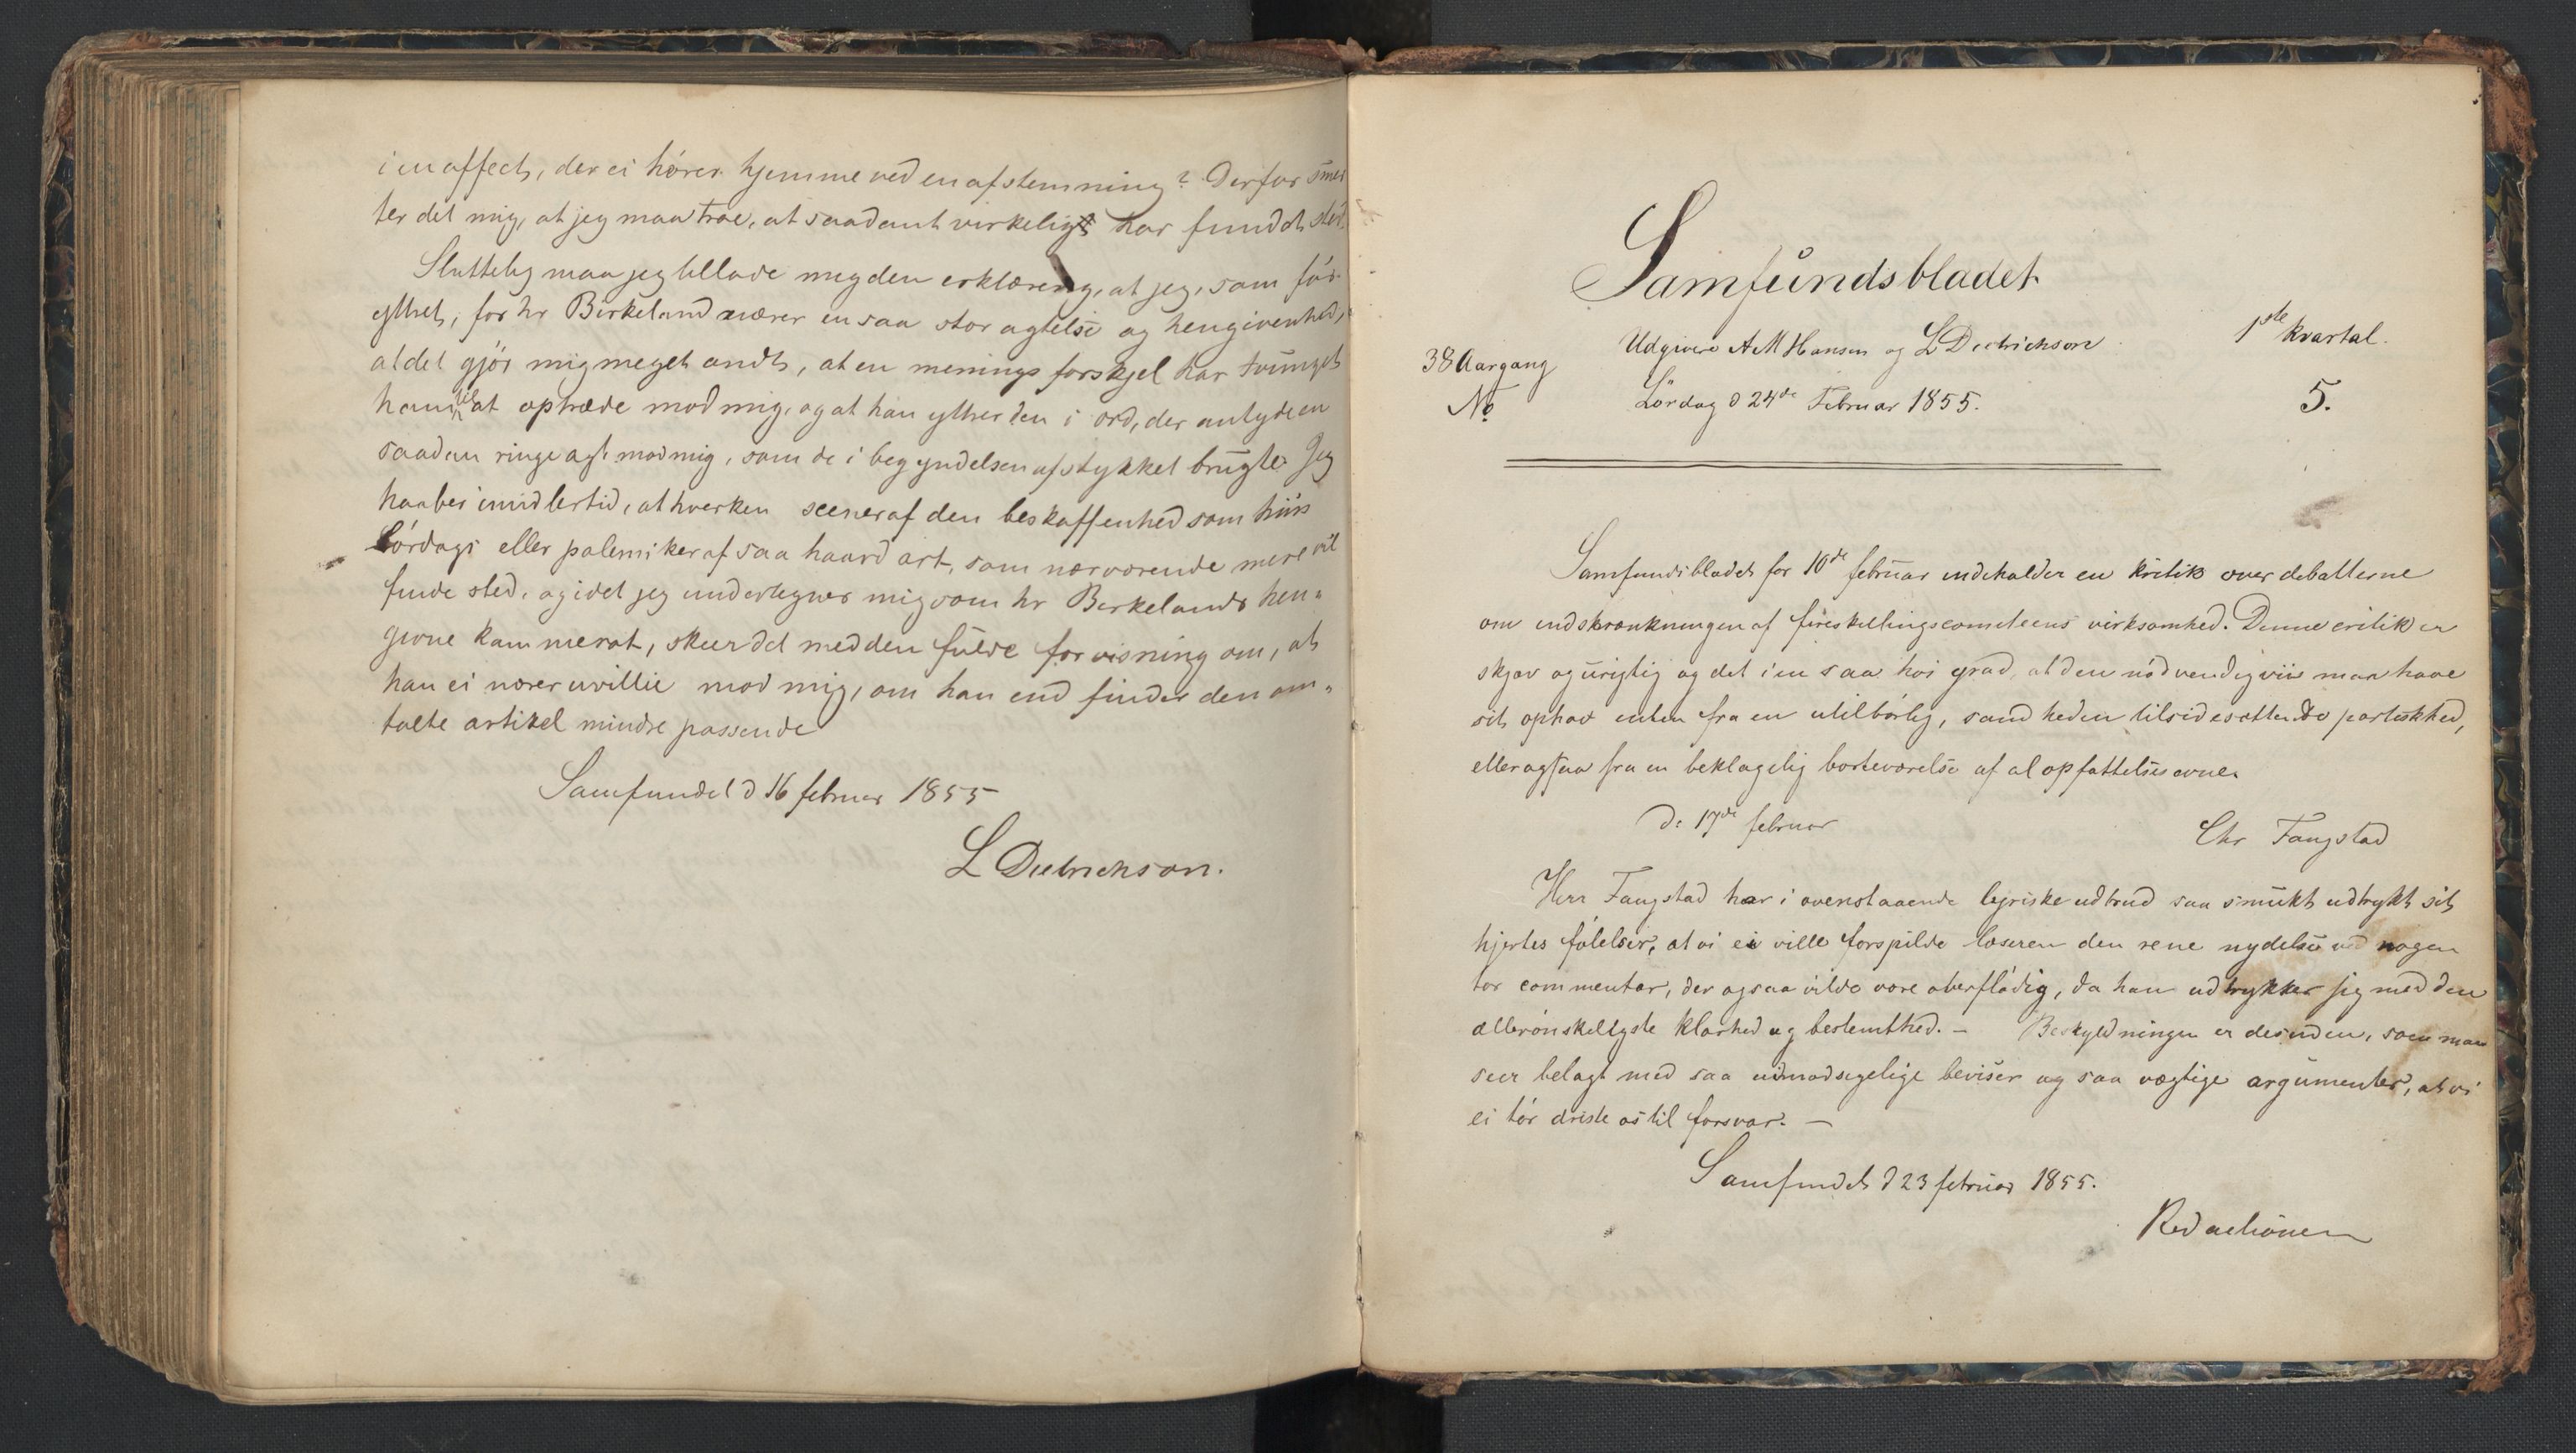 i en affect, der ei hörer hjemme ved en afstemning? Derfor smer
ter det mig, at jeg maa troe, at saadant virkeligt har fundet sted.
Sluttelig maa jeg tillade mig den erklæring, at jeg, som för
yttret, for hr Birkeland nærer en saa stor agtelse og hengivenhed,
at det gjör mig meget ondt, at en menings forskjel har tvunget
ham til at optræde mod mig, og at han yttrer den i ord, der antyde en
saadan ringeagt mod mig, som de i begyndelsen af stykket brugte. Jeg
haaber imidlertid, at hverken scener af den beskaffenhed som hiin
Lördags eller polemiker af saa haard art, som nærværende mere vil
finde sted, og idet jeg undertegner mig som hr Birkelands hen-
givne kammerat, skeer det med den fulde forvisning om, at
han ei nærer uvillie mod mig, om han end finder den om-
talte artikel mindre passende
Samfundet d 16 februar 1855
L Dietrichson.
Samfundsbladet
38 Aargang Udgivere A M Hansen og L Dietrichson 1ste kvartal.
No Lördag d 24de Februar 1855. 5.
Samfundsbladet for 10de februar indeholder en kritik over debatterne
om indskrænkningen af forestillingscomiteens virksomhed. Denne critik er
skjæv og urigtig og det i en saa höi grad, at den nödvendigviis maa have
sit ophav enten fra en utilbörlig, sandheden tilsidesættende partiskhed,
eller ogsaa fra en beklagelig borteværelse af al opfattelsesevne.
d: 17de februar
Chr Fangstad
Herr Fangstad har i ovenstaaende lyriske udbrud saa smukt udtrykt sit
hjertes fölelser, at vi ei ville forspilde læseren den rene nydelse ved nogen
tör commentar, der ogsaa vilde være overflödig, da han udtrykker sig med den
allerönskeligste klarhed og bestemthed. – Beskyldningen er desuden, som man
seer belagt med saa uimodsigelige beviser og saa vægtige argumenter, at vi
ei tör driste os til forsvar. –
Samfundet d 23 februar 1855.
Redactionen